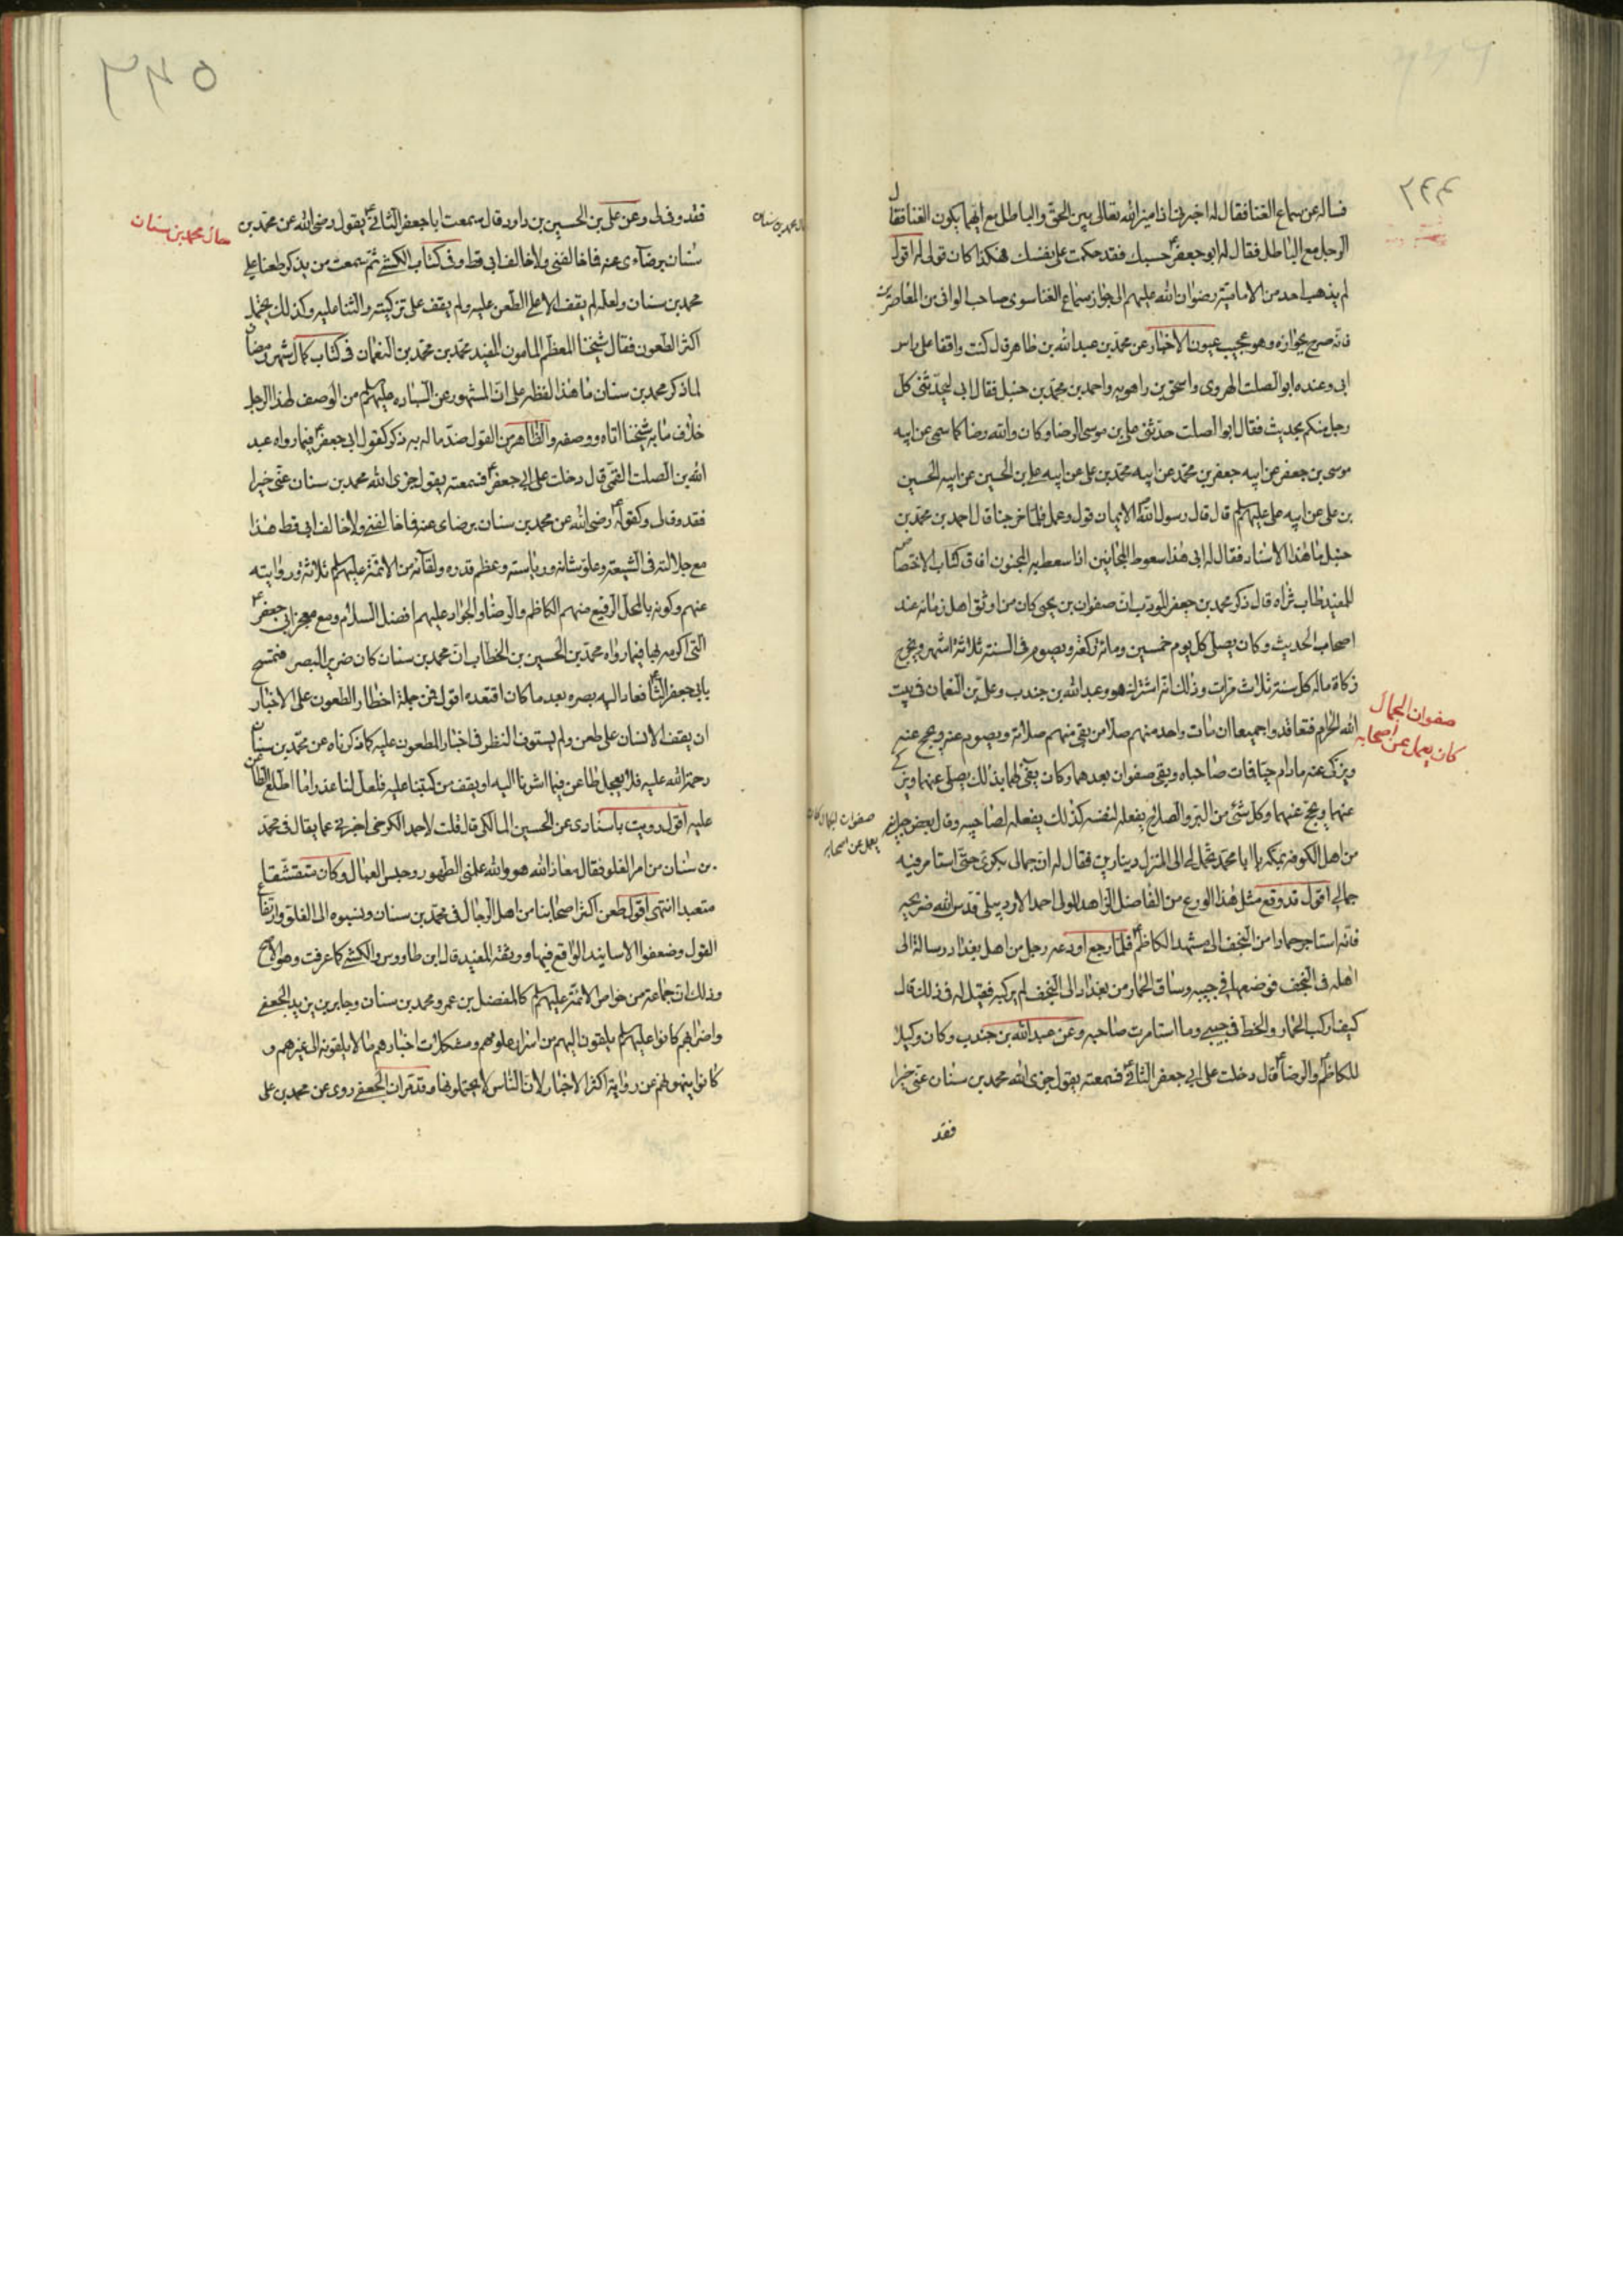 ٢٤٤
فساله عن سماع الغنا فقال له اخبرني اذا ميز الله تعالى بين الحق والباطل مع ايهما يكون الغنا فقال
الرجل مع الباطل فقال له ابو جعفر ع حسبك فقد حكمت على نفسك هكذا كان قولى له اقول
لم يذهب احد من الامامية رضوان الله عليهم الى جواز سماع الغنا سوى صاحب الوافى من المعاصرين
فانه صرح بجوازه وهو عجيب عيون الاخبار عن محمد بن عبد الله بن طاهر قال كنت واقفا على راس
ابى وعنده ابو الصلت الهروى واسحق بن راهويه واحمد بن محمد بن حنبل فقال ابى ليحدثنى كل
رجل منكم بحديث فقال ابو الصلت حدثنى على بن موسى الرضا وكان والله رضا كما سمى عن ابيه
موسى بن جعفر عن ابيه جعفر بن محمد عن ابيه محمد بن على عن ابيه على بن الحسين عن ابيه الحسين
بن على عن ابيه على عليهم قال قال رسول الله ص الايمان قول وعمل فلما خرجنا قال احمد بن محمد بن
حنبل ما هذا الاسناد فقال له ابى هذا سعوط المجانين اذا سعط به المجنون افاق كتاب الاختصاص
للمفيد طاب ثراه قال ذكر محمد بن جعفر المؤدب ان صفوان بن يحيى كان من اوثق اهل زمانه عند
اصحاب الحديث وكان يصلى كل يوم خمسين ومائة ركعة ويصوم فى السنة ثلاثة اشهر ويخرج
زكاة ماله كل سنة ثلاث مرات وذلك انه اشترك هو وعبد الله بن جندب وعلى بن النعمان فى بيت
الله الحرام فتعاقدوا جميعا ان مات واحد منهم صلا من بقى منهم صلاته ويصوم عنه ويحج عنه
ويزكى عنه مادام حيا فمات صاحباه وبقى صفوان بعدهما وكان يفى لهما بذلك يصلى عنهما ويزكى
عنهما ويحج عنهما وكل شئ من البر والصلاح يفعله لنفسه كذلك يفعله لصاحبيه وقال بعض جيرانه
من اهل الكوفة بمكة يا ابا محمد تحمل لى الى المنزل دينارين فقال له ان جمالى بكرى حتى استامر فيه
جمالى اقول قد وقع مثل هذا الورع من الفاضل الزاهد المولى احمد الاردبيلى قدس الله ضريحه
فانه استاجر حمارا من النجف الى مشهد الكاظم ع فلما رجع اودعه رجل من اهل بغداد رسالة الى
اهله فى النجف فوضعها فى جيبه وساق الحمار من بغداد الى النجف لم يركبه فقيل له فى ذلك قال
كيف اركب الحمار والخط فى جيبى وما استامرت صاحبه وعن عبد الله بن جندب وكان وكيلا
للكاظم ع والرضا ع قال دخلت على ابى جعفر الثانى ع فسمعته يقول جزى الله محمد بن سنان عنى خيرا
فقد
صفوان الجمال
كان يعمل عن اصحابه
صفوان الجمال كان
يعمل عن اصحابه
٣٤٥
فقد وفى لى وعن على بن الحسين بن داود قال سمعت ابا جعفر الثانى ع يقول رضى الله عن محمد بن
سنان برضاءى عنه فما خالفنى ولا خالف ابى قط وفى كتاب الكشى ثم سمعت من يذكر طعنا على
محمد بن سنان ولعله لم يقف الا على الطعن عليه ولم يقف على تزكيته والثنا عليه وكذلك يحتمل
اكثر الطعون فقال شيخنا المعظم المامون المفيد محمد بن محمد بن النعمان فى كتاب كمال شهر رمضان
لما ذكر محمد بن سنان ما هذا لفظه على ان المشهور عن الساده عليهم من الوصف لهذا الرجل
خلاف ما به شيخنا اتاه ووصفه والظاهر من القول ضد ما له به ذكر كقول ابى جعفر ع فيما رواه عبد
الله بن الصلت القمى قال دخلت على ابى جعفر ع فسمعته يقول جزى الله محمد بن سنان عنى خيرا
فقد وفى لى وكقوله ع رضى الله عن محمد بن سنان برضاى عنه فما خالفنى ولا خالف ابى قط هذا
مع جلالته فى الشيعة وعلو شانه ورياسته وعظم قدره ولقائه من الائمة عليهم ثلاثة وروايته
عنهم وكونه بالمحل الرفيع منهم الكاظم والرضا والجواد عليهم افضل السلام ومع معجز ابى جعفر ع
التى اكرمه بها فيما رواه محمد بن الحسين بن الخطاب ان محمد بن سنان كان ضرير البصر فتمسح
بابى جعفر الثانى ع فعاد اليه بصره بعد ما كان افتقده اقول فمن جملة اخطار الطعون على الاخبار
ان يقف الانسان على طعن ولم يستوف النظر فى اخبار المطعون عليه كما ذكرناه عن محمد بن سنان
رحمة الله عليه فلا يعجل طاعن فيما اشرنا اليه او يقف من كتبنا عليه فلعل لنا عذرا ما اطلع الطاعن
عليه اقول رويت باسنادى عن الحسين المالكى قال قلت لاحمد الكرخى اخبرنى عما يقال فى محمد
بن سنان من امر الغلو فقال معاذ الله هو والله علمنى الطهور وحبس العيال وكان متقشفا
متعبدا انتهى اقول طعن اكثر اصحابنا من اهل الرجال فى محمد بن سنان ونسبوه الى الغلو وارتفاع
القول وضعفوا الاسانيد الواقع فيها ووثقه المفيد قال ابن طاووس والكشى كما عرفت وهو الاصح
وذلك ان جماعة من خواص الائمة عليهم كالمفضل بن عمر ومحمد بن سنان وجابر بن يزيد الجعفى
واضرابهم كانوا عليهم يلقون اليهم من اسرار علومهم ومشكلات اخبارهم ما لا يلقونه الى غيرهم و
كانوا ينهونهم عن رواية اكثر الاخبار لان الناس لا يحتملونها وقد مر ان الجعفى روى عن محمد بن على
حال محمد بن سنان
حال محمد بن سنان